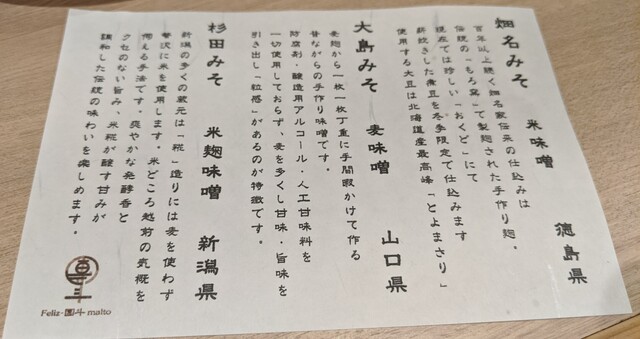 畑名みそ　米味噌　徳島県
百年以上続く畑名家伝来の仕込みは
伝統の「もろ窯」にて製麹された手作り麹。
現在では珍しい「おくど」にて
薪炊きした煮豆を冬季限定で仕込みます
使用する大豆は北海道産最高峰「とよまさり」
大島みそ　麦味噌　山口県
麦麹から一枚一枚丁重に手間暇かけて作る
昔ながらの手作り味噌です。
防腐剤・醸造用アルコール・人工甘味料を
一切使用しておらず、麦を多くし甘味・旨味を
引き出し「粒感」があるのが特徴です。
杉田みそ　米麹味噌　新潟県
新潟の多くの蔵元は「糀」造りには麦を使わず
贅沢に米を使用します。米どころ越前の気概を
伺える手法です。爽やかな発酵香と
クセのない旨み、米糀が醸す甘みが
調和した伝統の味わいを楽しめます。
Feliz-国斗 malto